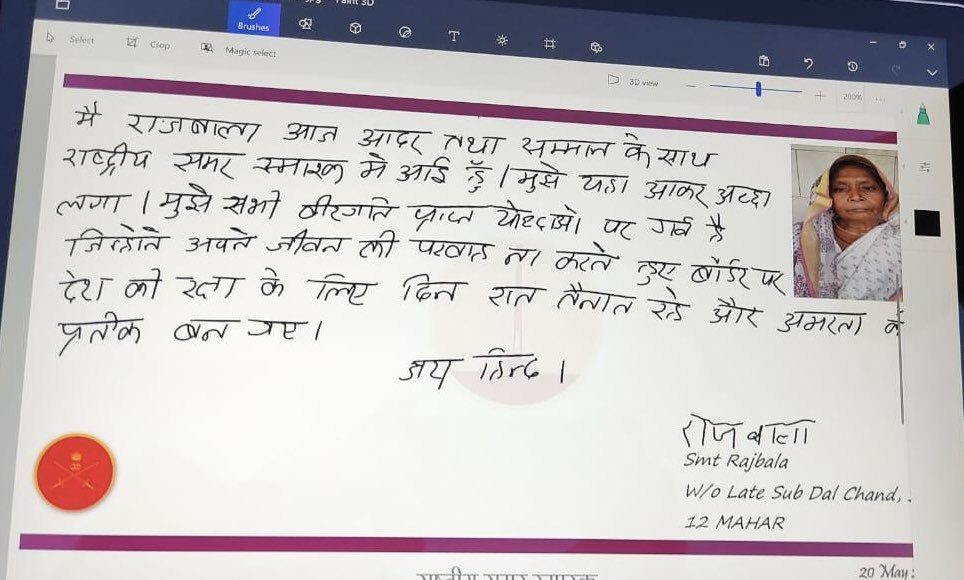 Paint 3D
Brushes
Select
Crop
Magic select
3D view
200%
मै राजबाला आज आदर तथा सम्मान के साथ
राष्ट्रीय समर स्मारक मे आई हूँ। मुझे यहा आकर अच्छा
लगा। मुझे सभी वीरगति प्राप्त योद्दाओ पर गर्व है
जिन्होने अपने जीवन की परवाह ना करते हुए बॉर्डर पर
देश की रक्षा के लिए दिन रात तैनात रहे और अमरता के
प्रतीक बन गए।
जय हिन्द।
राजबाला
Smt Rajbala
W/o Late Sub Dal Chand,
12 MAHAR
राष्ट्रीय समर स्मारक
20 May